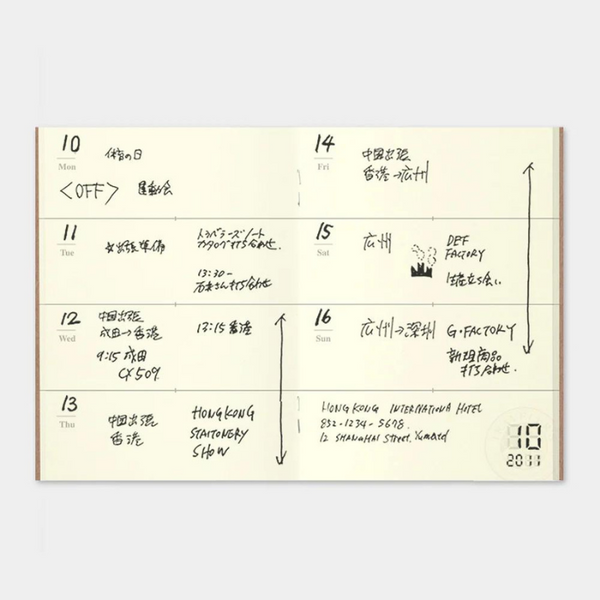 10
Mon
体育の日
<OFF> 運動会
11
Tue
出張準備
トラベラーズノート
カタログ打ち合わせ.
13:30-
打ち合わせ
12
Wed
中国出張
成田→香港
9:15 成田
CX509
13:15 香港
13
Thu
中国出張
香港
HONGKONG
STAITONERY
SHOW
14
Fri
中国出張
香港→広州
15
Sat
広州
DEF
FACTORY
立ち会い.
16
Sun
広州→深圳
G・FACTORY
新規商品
打ち合わせ.
HONG KONG INTERNATIONA HOTEL
852-1234-5678.
12 SHANGHAI STREET.
10
2011